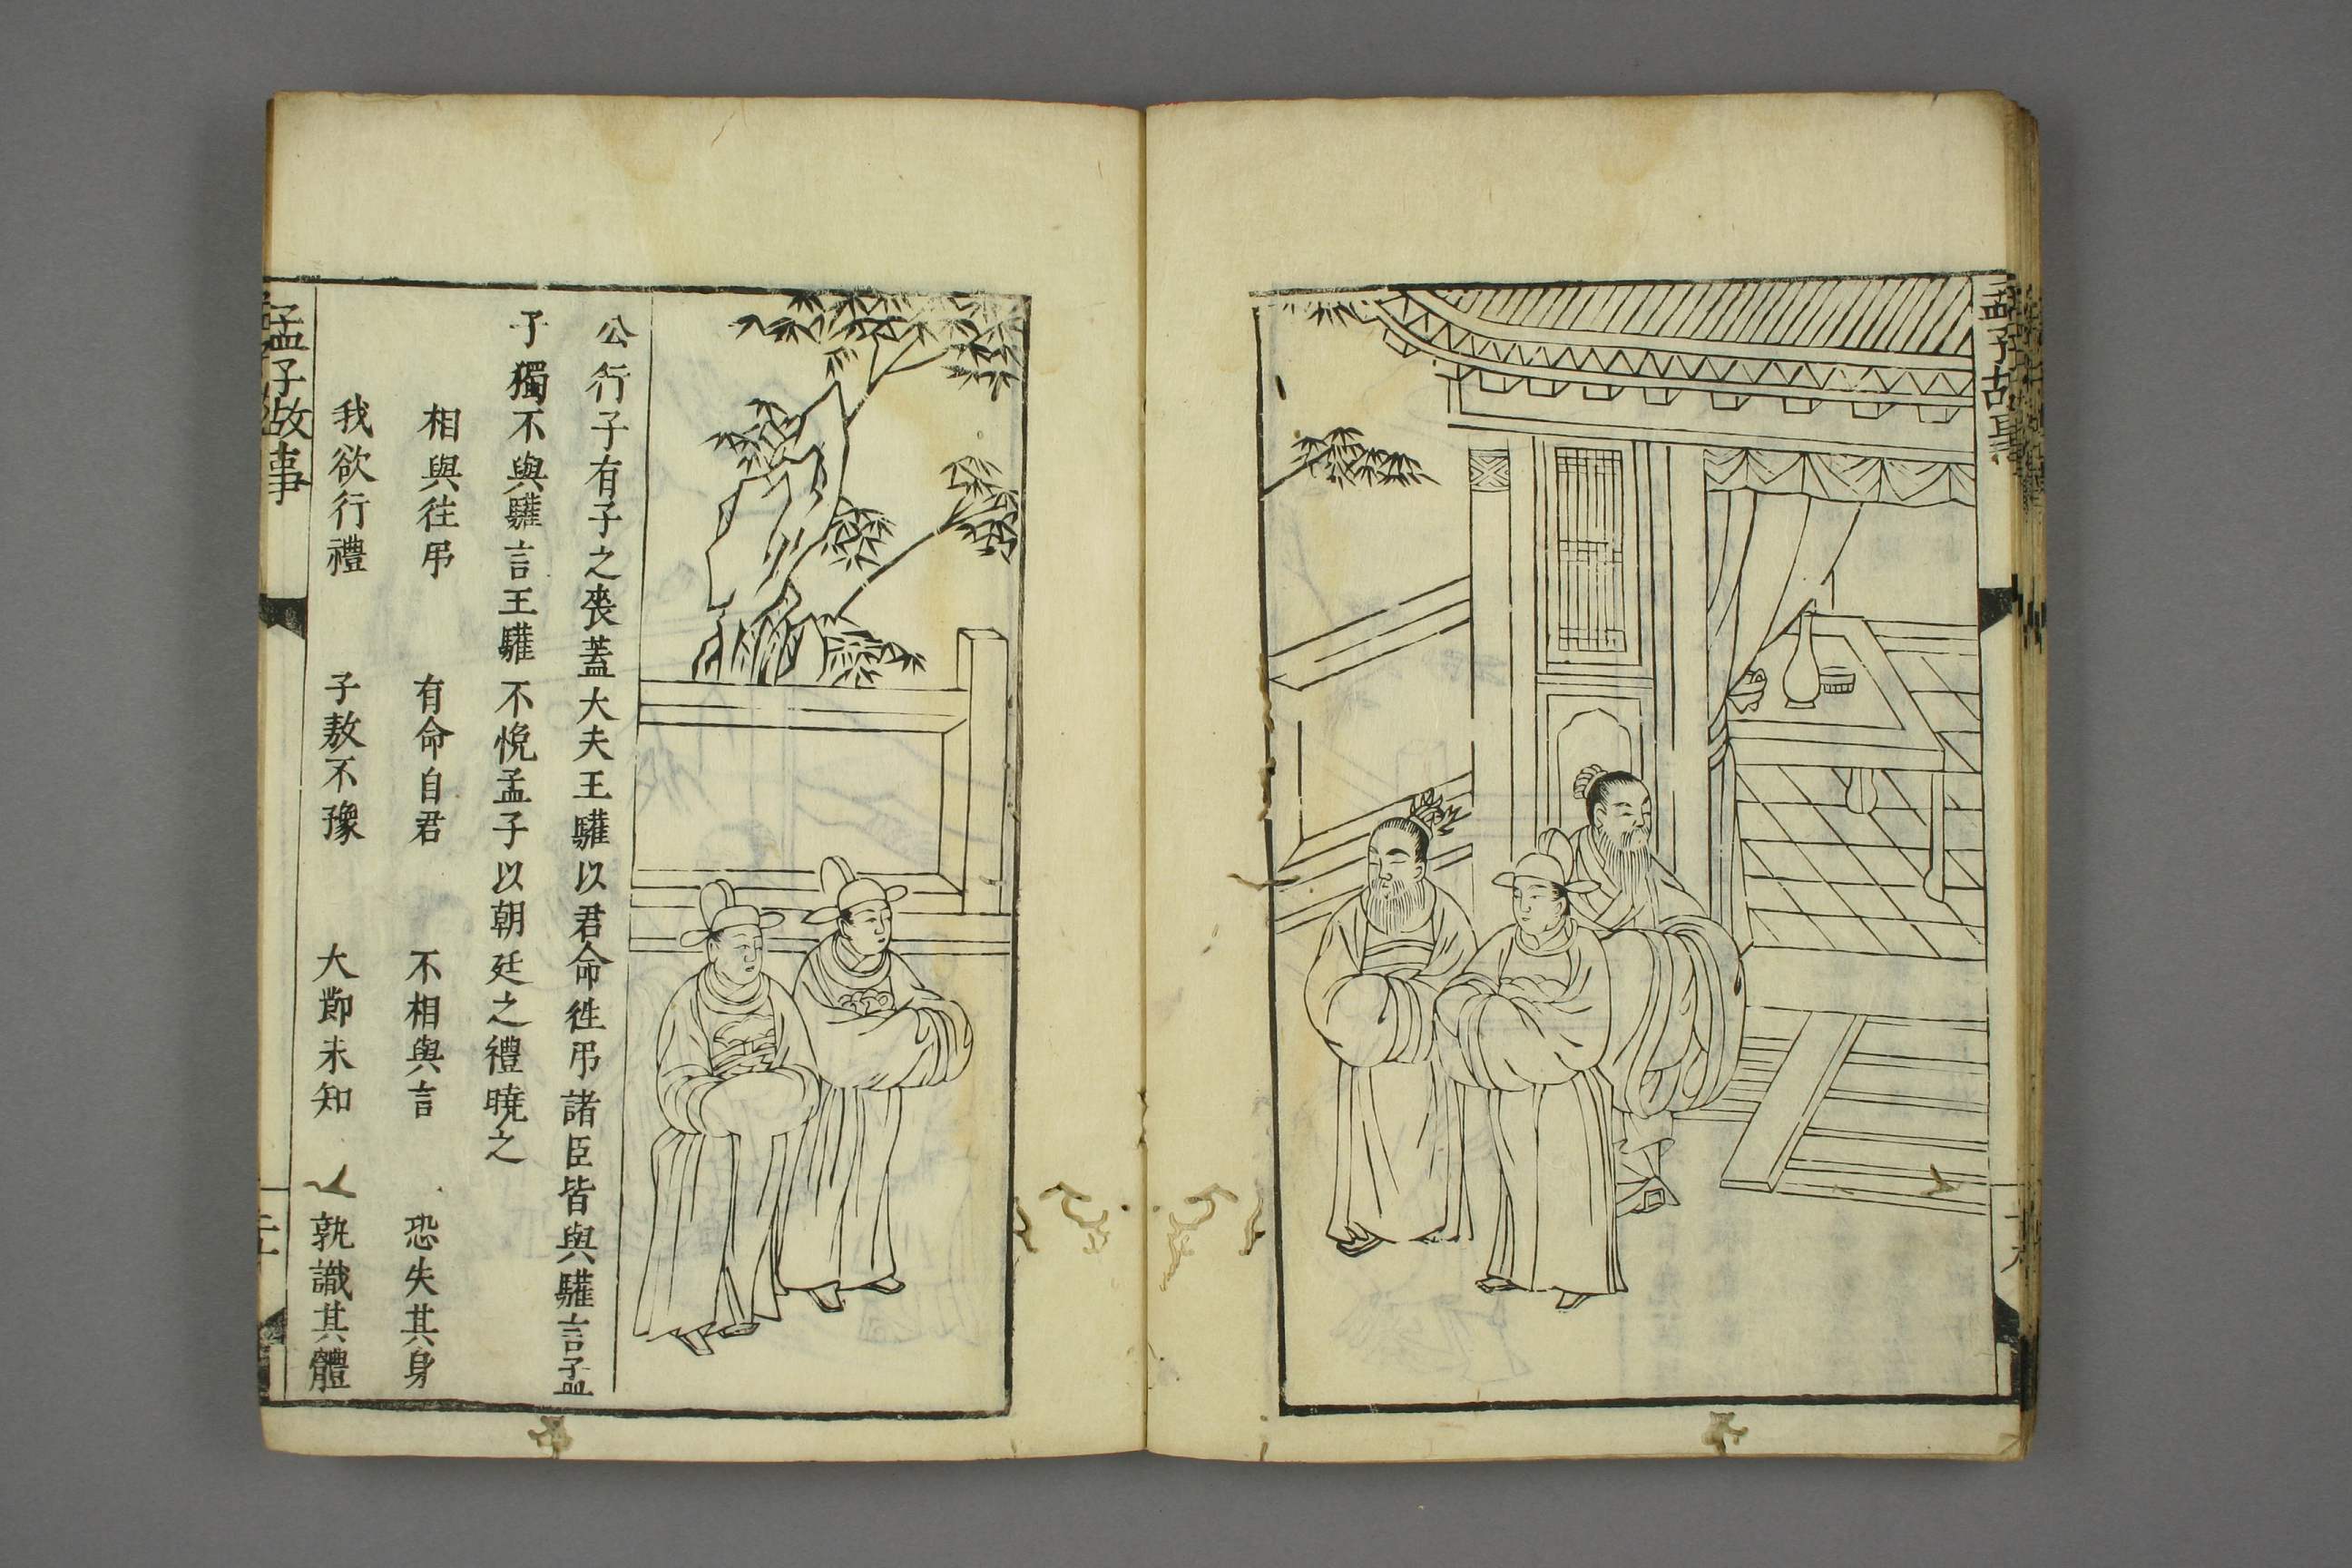 孟子故事
公行子有子之喪蓋大夫王驩以君命徃吊諸臣皆與驩言孟
子獨不與驩言王驩不悅孟子以朝廷之禮曉之
相與往吊 有命自君 不相與言 恐失其身
我欲行禮 子敖不豫 大節未知 孰識其體
孟子故事